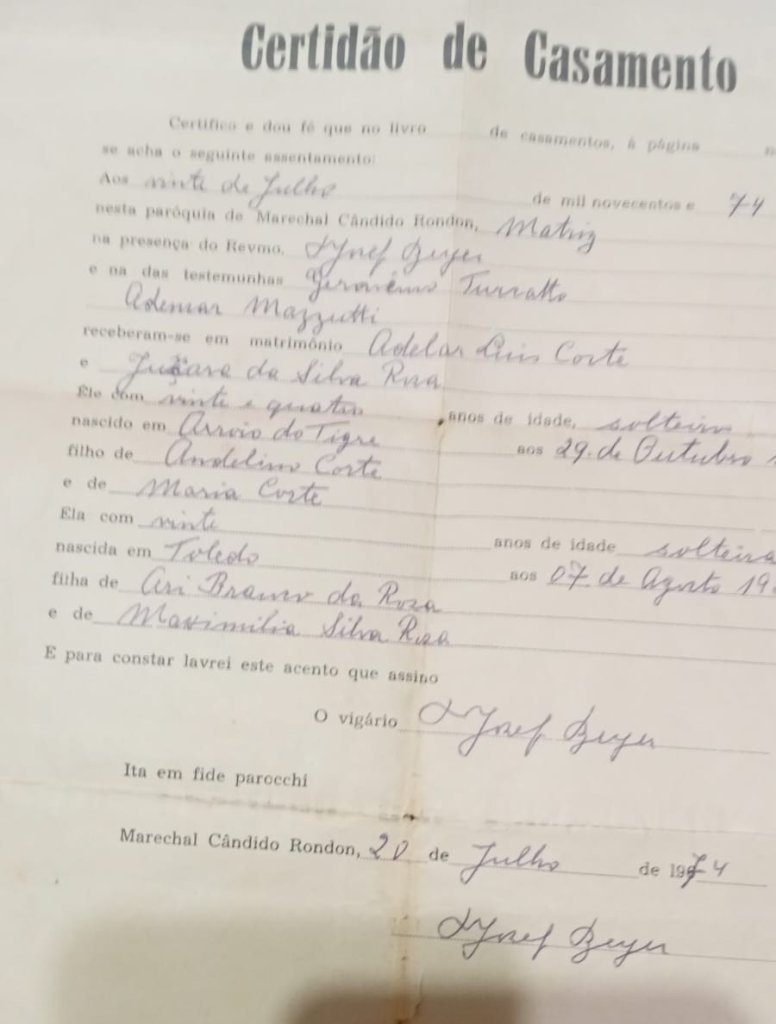 Certidão de Casamento
Certifico e dou fé que no livro de casamentos, à página
se acha o seguinte assentamento:
Aos vinte de Julho de mil novecentos e 74
nesta paróquia de Marechal Cândido Rondon, Matriz
na presença do Revmo. Josef Beyer
e na das testemunhas Gerônimo Turratto
Ademar Mazzutti
receberam-se em matrimônio Adelar Luis Corte
e da Silva Rosa
Ele com vinte e quatro anos de idade, solteiro
nascido em Arroio do Tigre aos 29 de Outubro
filho de Andelino Corte
e de Maria Corte
Ela com vinte anos de idade solteira
nascida em Toledo aos 07 de Agosto 19
filha de Ari Branco da Rosa
e de Maximilia Silva Rosa
E para constar lavrei este acento que assino
O vigário Josef Beyer
Ita em fide parocchi
Marechal Cândido Rondon, 20 de Julho de 1974
Josef Beyer